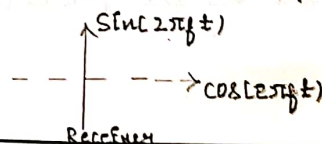 Sin(2πft)
cos(2πft)
Receiver